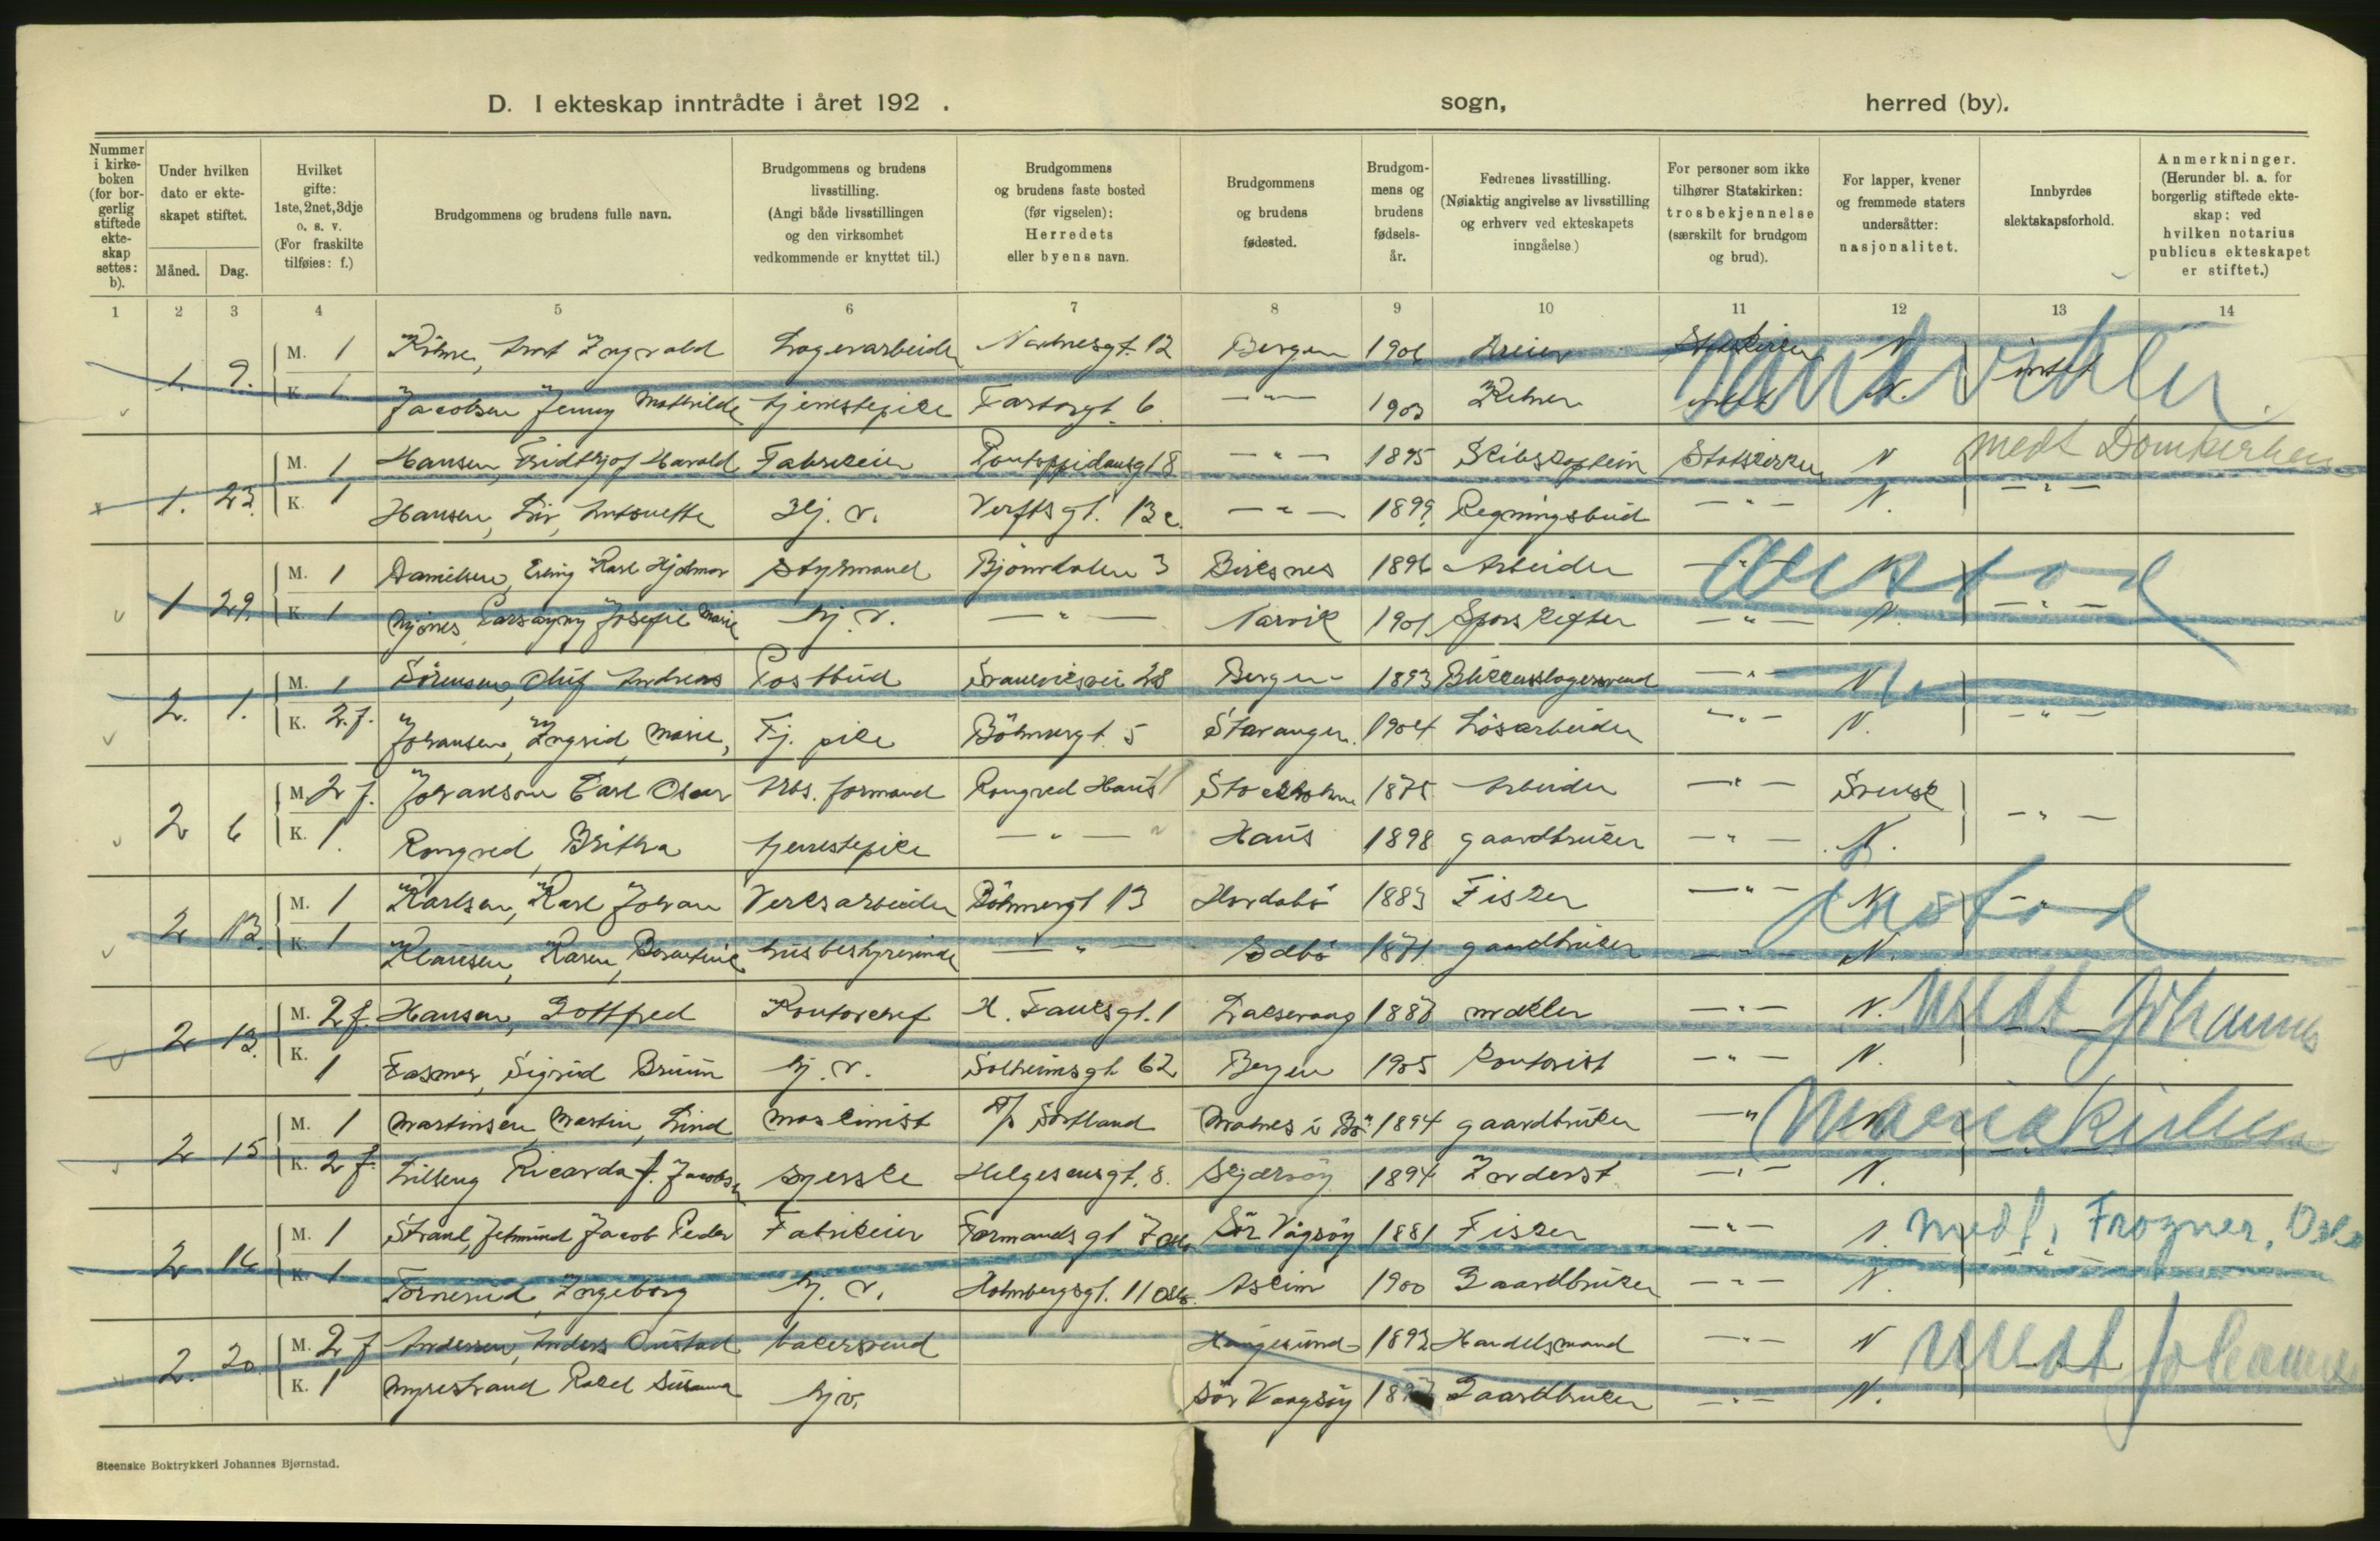 D. I ekteskap inntrådte i året 192 . sogn, herred (by).
Nummer i kirkeboken (for borgerlig stiftede ekteskap settes: b).
Under hvilken dato er ekteskapet stiftet.
Måned. Dag.
Hvilket gifte: 1ste, 2net, 3dje o. s. v. (For fraskilte tilføies: f.)
Brudgommens og brudens fulle navn.
Brudgommens og brudens livsstilling. (Angi både livsstillingen og den virksomhet vedkommende er knyttet til.)
Brudgommens og brudens faste bosted (før vigselen): Herredets eller byens navn.
Brudgommens og brudens fødested.
Brudgommens og brudens fødselsår.
Fedrenes livsstilling. (Nøiaktig angivelse av livsstilling og erhverv ved ekteskapets inngåelse)
For personer som ikke tilhører Statskirken: trosbekjennelse (særskilt for brudgom og brud).
For lapper, kvener og fremmede staters undersåtter: nasjonalitet.
Innbyrdes slektskapsforhold.
Anmerkninger. (Herunder bl. a. for borgerlig stiftede ekteskap: ved hvilken notarius publicus ekteskapet er stiftet.)
1 2 3 4 5 6 7 8 9 10 11 12 13 14
1. 9. M. 1 Ingvald Lagerarbeider 12 Bergen 1901 Statskirken N intet
K. 1 Jacobsen Jenny Mathilde tjenestepike 6 —"— 1903 Kelner N.
Sandviken
1. 23. M. 1 Hansen, Fridthjof Harald Fabrikeier Pontoppidansgt 8 —"— 1895 Skibskaptein Statskirken N
medt Domkirken
K. 1 Hansen, Liv, Antonette Hj. v. Verftsgt. 13 c. —"— 1899 Regningsbud —"— N. —"—
1 29. M. 1 Danielsen, Erling Karl Hjalmar Styrmand Bjørndalen 3 Birkenes 1896 Arbeider —"— N
K. 1 Josefie Marie hj. v. —"— Narvik 1901 —"— N. —"—
2. 1. M. 1 Sörensen, Oluf Andreas Postbud 28 Bergen 1893 Blikkenslagersvend —"— N
K. 2. f. Johansen, Ingrid, Marie, Tj. pike Böhmergt. 5 Stavanger. 1904 Løsarbeider —"— N. —"—
2 6 M. 2 f. Johansson Carl Oscar Arb. formand Haus Stockholm 1875 Arbeider —"— Svensk
K. 1. Britha tjenestepike —"— Haus 1898 gaardbruker —"— N. —"—
2 13. M. 1 Karlsen, Karl Johan Verksarbeider Böhmergt 13 Hordabö 1883 Fisker —"— N
K. 1 Klausen, Karen, husbestyrerinde —"— 1871 gaardbruker —"— N.
2 13. M. 2 f. Hansen, Gottfred Kontorchef H. Fauesgt. 1 Laksevaag 1888 mækler —"— N.
medt Johannes
K. 1 Fasmer, Sigrid Bruun hj. v. Solheimsgt 62 Bergen 1905 Kontorist —"— N.
2 15 M. 1 Martinsen, Martin, Lind maskinist Sortland 1894 gaardbruker —"
Mariakirken
K. 2 f. Lilleng Ricarda f. Jacobsen syerske Helgesensgt. 8. Skjærvöy 1894 —"— N.
2 16 M. 1 Strand, Jetmund Jacob Peder Fabrikeier Sör Vågsöy 1881 Fisker —"— N.
medt, Frogner, Oslo
K. 1 Ingeborg hj. v. Holmbergsgt. 11 Oslo. Askim 1900 Gaardbruker —"— N.
2. 20. M. 2 f Andersen, Anders bakersvend Haugesund 1893 Handelsmand —"— N
medt Johannes
K. 1 Myrestrand Rakel Susanna hj. v. Sör Vaagsöy Gaardbruker —"— N.
Steenske Boktrykkeri Johannes Bjørnstad.